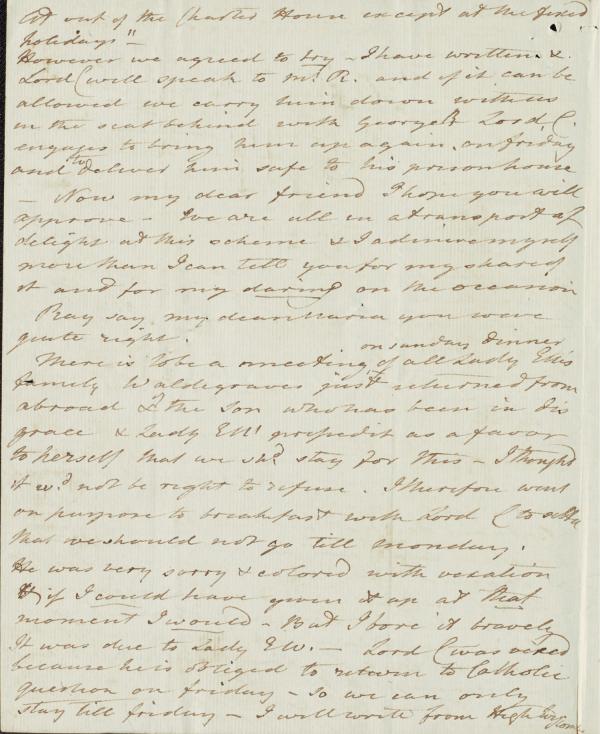 out of the Charter House except at the fixed
holidays" —
However we agreed to try — I have written &
Lord C will speak to Mr. R. and if it can be
allowed we carry him down with us
in the seat behind with George & Lord C.
engages to bring him up again on friday
and to deliver him safe to his prison house
— Now my dear friend I hope you will
approve — We are all in a transport of
delight at this scheme & I admire myself
more than I can tell you for my share of
it and for my daring on the occasion
Pray say my dear Maria you were
quite right.
on sunday dinner
There is to be a meeting of all Lady EWs
family Waldegraves just returned from
abroad & the son who has been in dis
grace & Lady EW as a favor
to herself that we shd. stay for this — I thought
it wd. not be right to refuse. I therefore went
on purpose to breakfast with Lord C to settle
that we should not go till monday.
He was very sorry & colored with vexation
& if I could have given it up at that
moment I would — But I bore it bravely
It was due to Lady EW. — Lord C was vexed
because he is obliged to return to Catholic
question on friday — so we can only
stay till friday — I will write from High Wycombe